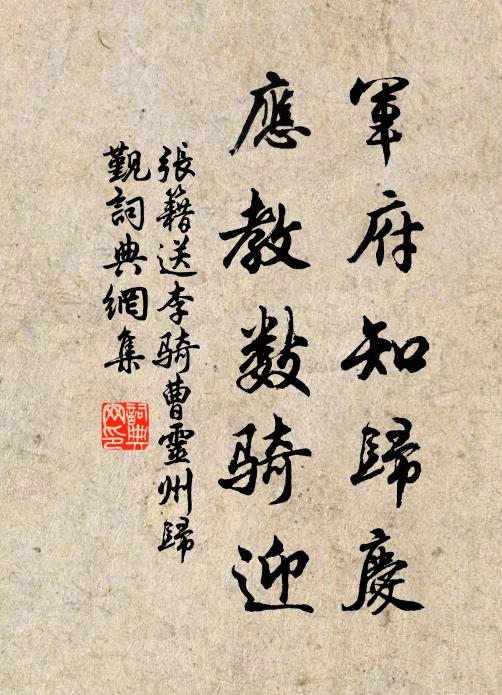 軍府知歸慶
應教數騎迎
張籍送李騎曹靈州歸
覲詞典網集
詞典
网印